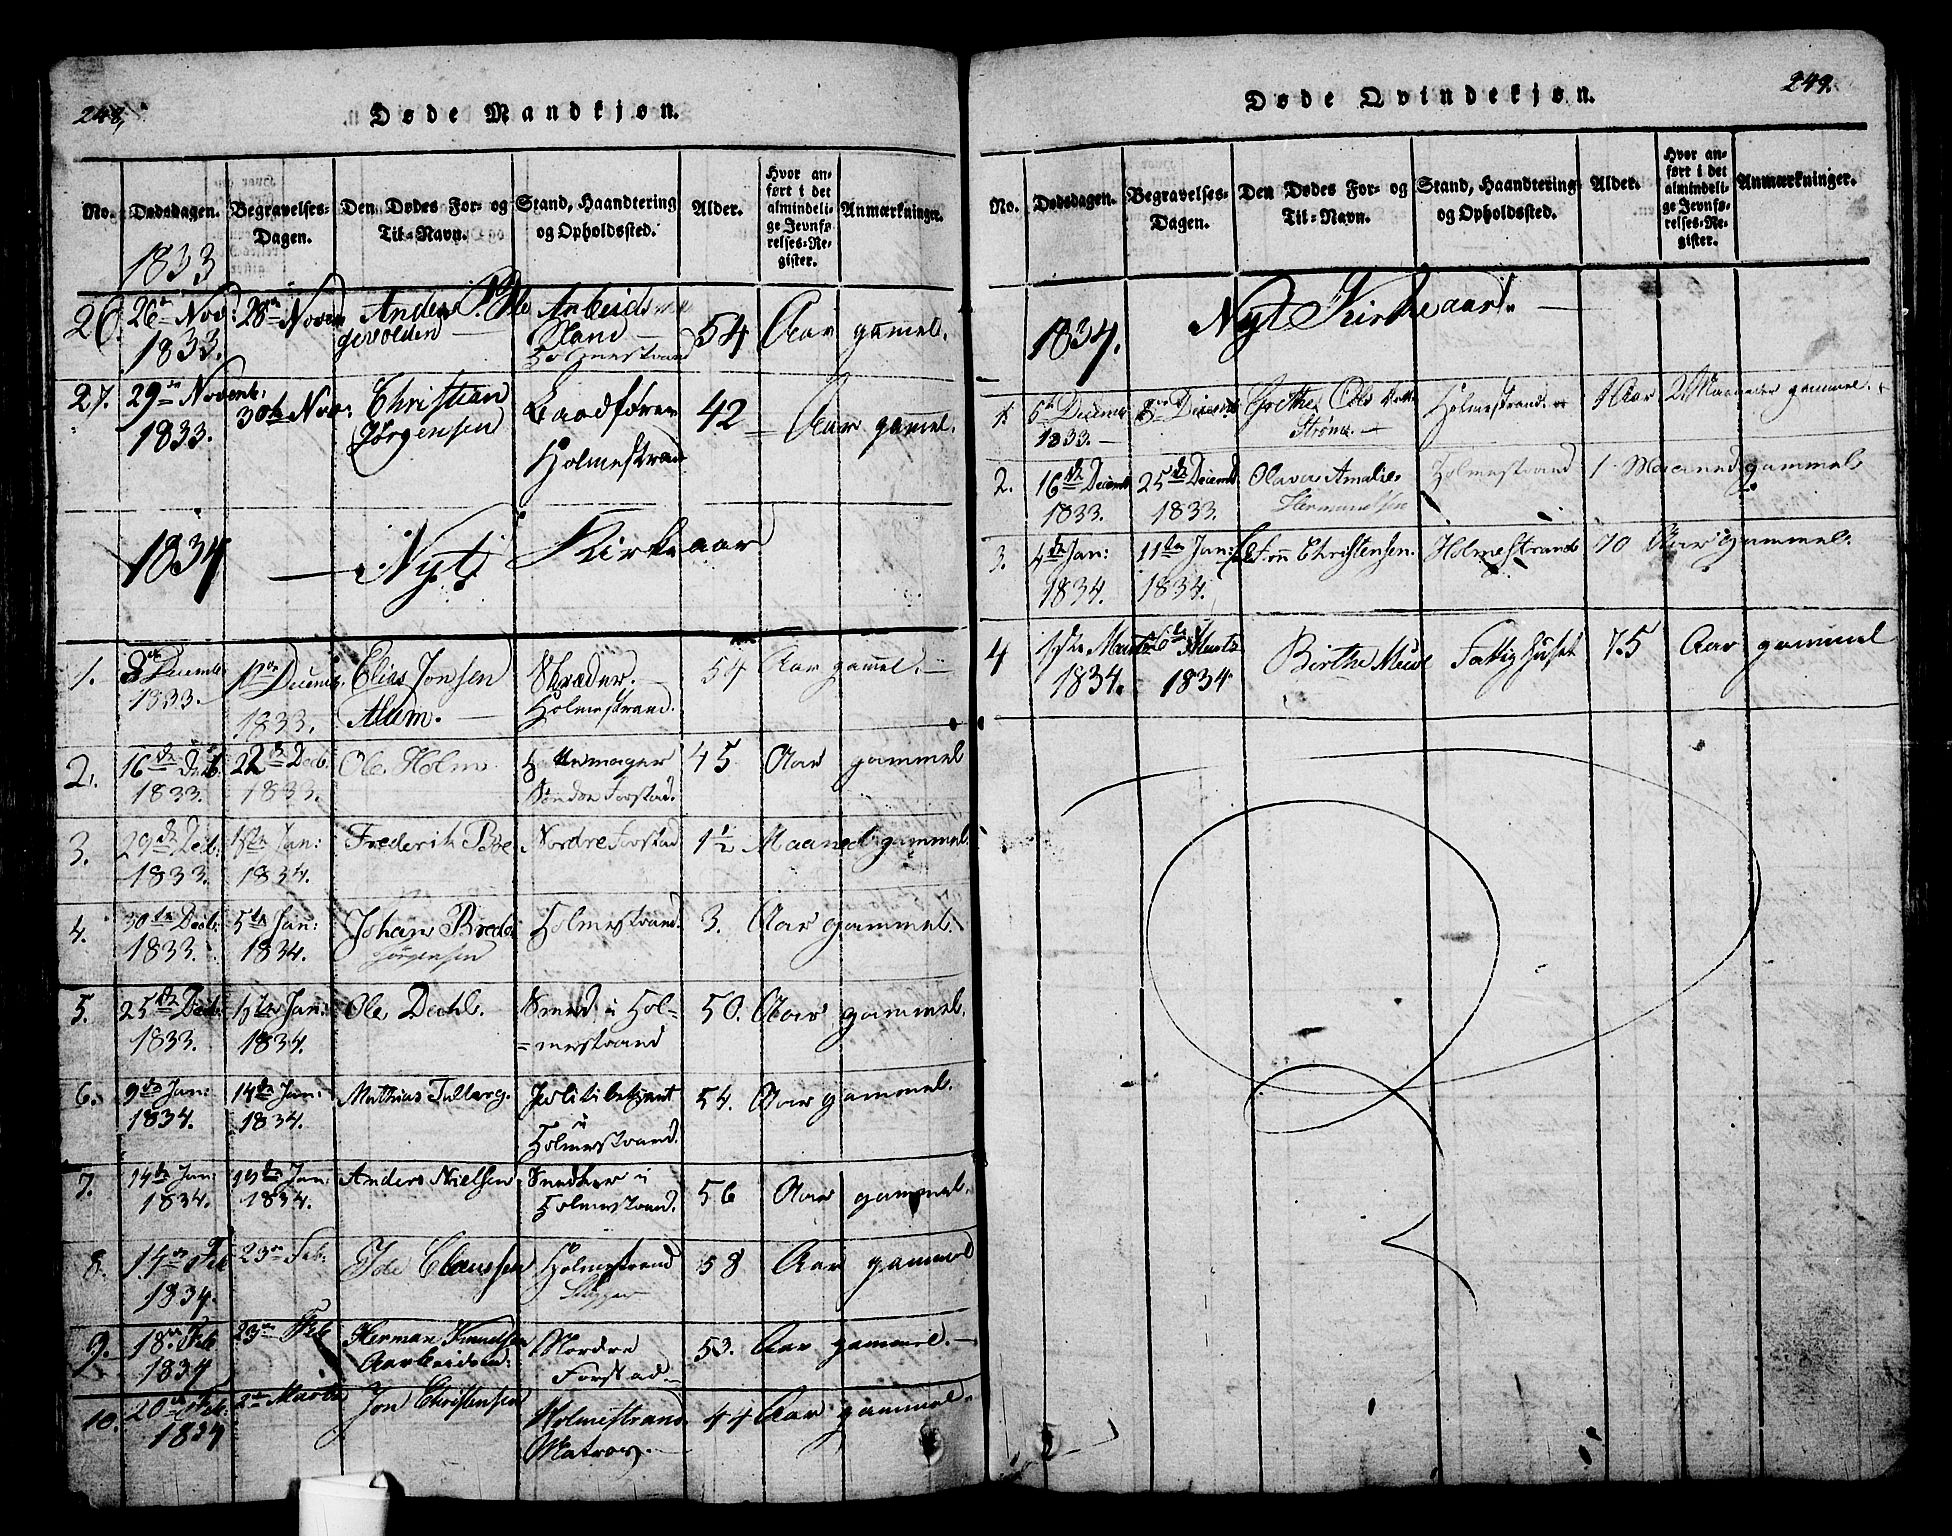 248.
Døde Mandkjøn.
No.
Dødsdagen.
Begravelses-
Dagen.
Den Dødes For- og
Til-Navn.
Stand, Haandtering
og Opholdssted.
Alder.
Hvor an-
ført i det
almindeli-
ge Jevnfø-
relses-Re-
gister.
Anmærkninger.
1833
26. 26 Nov: 28 Novem Anders Arbeids
1833. Mand 54 Aar gamel.
Holmestrand
27. 29 Novemb: 30te Nov: Christian 42 Aar gamel.
1833. Jørgensen
Holmestrand
1834 Nyt Kirkeaar
1. Decemb Decemb. Elias Jonsen Skræder. 54 Aar gamel.
1833. 1833. Holmestrand.
2. 16de Decb. 22 Decb. Ole Holm 45 Aar gammel
1833. 1833. Søndre Forstad.
3. 29de Decb. 1ste Jan: Frederik Nordre Forstad 1½ Maaned gammel.
1833. 1834.
4. 30te Decb. 5te Jan: Johan Holmestrand. 3. Aar gammel.
1833. 1834. Jørgensen
5. 25de Decb. 1ste Jan: Ole Dahl. Smed i Hol= 50. Aar gammel.
1833. 1834. =mestrand
6. 9de Jan: 14de Jan: Mathias Politibetjent 54. Aar gammel.
1834. 1834. i
Holmestrand.
7. 14de Jan: 19de Jan: Anders Nielsen Snedker i 56 Aar gammel.
1834. 1834. Holmestrand.
8. 14 Feb 23 Feb. Claussen Holmestrand 58 Aar gammel
1834.
9. 18 Feb 23 Feb Herman Knudsen Nordre 53. Aar gammel.
1834 Forstad
10. 20 Feb. 2 Marts Jon Christensen Holmestrand 44 Aar gammel.
1834 Matros.
249.
Døde Qvindekjøn.
No.
Dødsdagen.
Begravelses-
Dagen.
Den Dødes For- og
Til-Navn.
Stand, Haandtering
og Opholdssted.
Alder.
Hvor an-
ført i det
almindeli-
ge Jevnfø-
relses-Re-
gister.
Anmærkninger.
1834. Nyt Kirkeaar.
1. 5 Decemb 8 Decemb Grethe Ols Holmestrand 1 Aar 2 Maaneder gammel.
1833.
2. 16de Decemb 25de Decemb Olava Amalie Holmestrand 1 Maaned gammel
1833. 1833. Hermundsen
3. 4de Jan: 11te Jan: Christensen. Holmestrand 70 Aar gammel.
1834. 1834.
4 1ste Marts 6te Marts Birthe Fattighuset 75 Aar gammel
1834. 1834